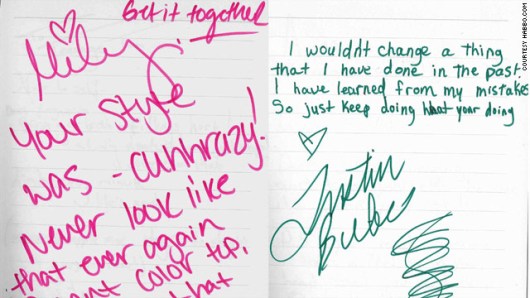 Get it together
Miley,
Your Style
was - cuhhrazy!
Never look like
that ever again
color
that
I wouldnt change a thing
that I have done in the past.
I have learned from my mistakes
So just keep doing what your doing
Justin
Biebe
COURTESY HABBO.COM